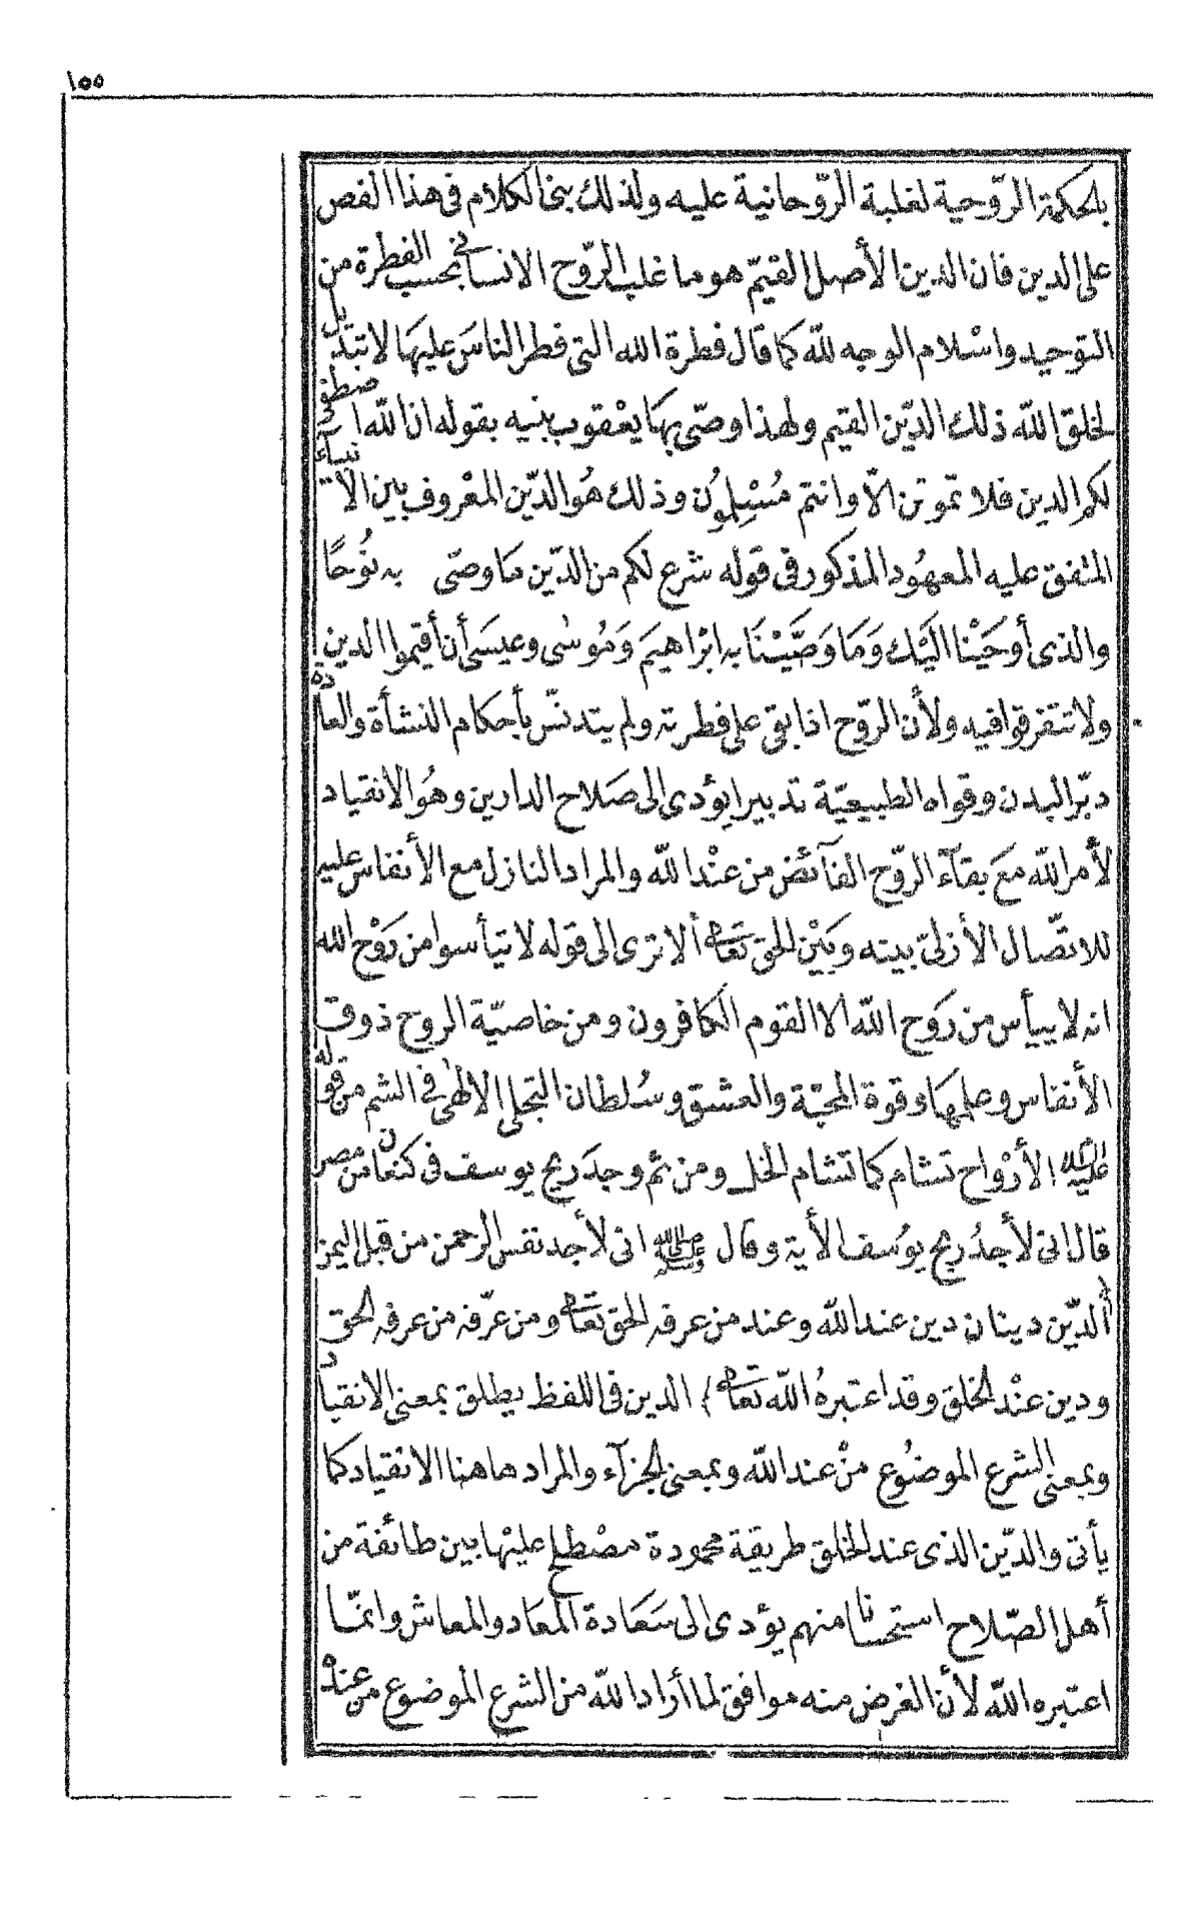 ١٥٥
بالحكمة الرّوحية لغلبة الرّوحانية عليه ولذلك بنى الكلام فى هذا الفص
على الدين فان الدين الأصل القيّم هو ما غلب الرّوح الانسانى بحسب الفطرة من
التوحيد واسْلام الوجه للّه كما قال فطرة الله التى فطر الناسَ عليهَا لا تبديل
لخلق اللّه ذلك الدّين القيم ولهذا وصّى بهَا يعْقوب بنيه بقوله ان اللّه اصطفى
لكم الدين فلا تموتن الّا وانتم مُسْلِموُن وذلك هُو الدّين المعْروف بين الانبيآء
المتفق عليه المعهُود المذكور فى قوله شرع لكم من الدّين مَا وصّى به نوُحًا
والذى أوحَيْنا اليَك وَمَا وَصَّيْنَا به ابْراهيمَ وَموُسٰى وعيسَى أن أقيموا الدين
ولا تتفرقوا فيه ولأن الرّوح اذا بقى على فطرته ولم يتدنّس بأحكام النشأة والعادة
دبّر البدن وقواه الطبيعيّة تدبيرا يؤدى الى صَلاح الدارين وهُو الانقياد
لأمر اللّه مَع بقآء الرّوح الفآئض من عنْد اللّه والمراد النازل مع الأنفاس عليه
للاتصّال الأزلىّ بينه وبَيْن الحق تعَالى ألا ترى الى قوله لا تيأسوا من رَوْح الله
انه لا ييأس من رَوح اللّه الا القوم الكافرون ومن خاصيّة الروح ذوق
الأنفاس وعلمهَا وقوة المحبّة والعشق وسُلطان التجلى الالهٰى فى الشم من قوله
عليه السلام الأرْواح تشام كما تشام الخل ومن ثم وجدَ ريح يوسف فى كنعان من مصر
قال انى لأجدُ ريح يوُسف الأية وقال ﷺ انى لأجد نفس الرحمن من قبل اليمن
﴿الدّين دينان دين عند اللّه وعند من عرفه الحق تعَالى ومن عرّفه من عرفه الحق
ودين عنْد الخلق وقد اعتبرهُ اللّه تعَالى﴾ الدين فى اللفظ يطلق بمعنى الانقياد
وبمعنى الشرع الموضوُع منْ عند اللّه وبمعنى الجزآء والمراد هاهنا الانقياد كما
يأتى والدّين الذى عند الخلق طريقة محمودة مصْطلح عليْها بين طائفة من
أهل الصّلاح استحسانا منهم يؤدى الى سَعَادة المعَاد والمعاش وانمّا
اعتبره اللّه لأن الغرض منه موافق لما أراد اللّه من الشرع الموضوع من عندْه